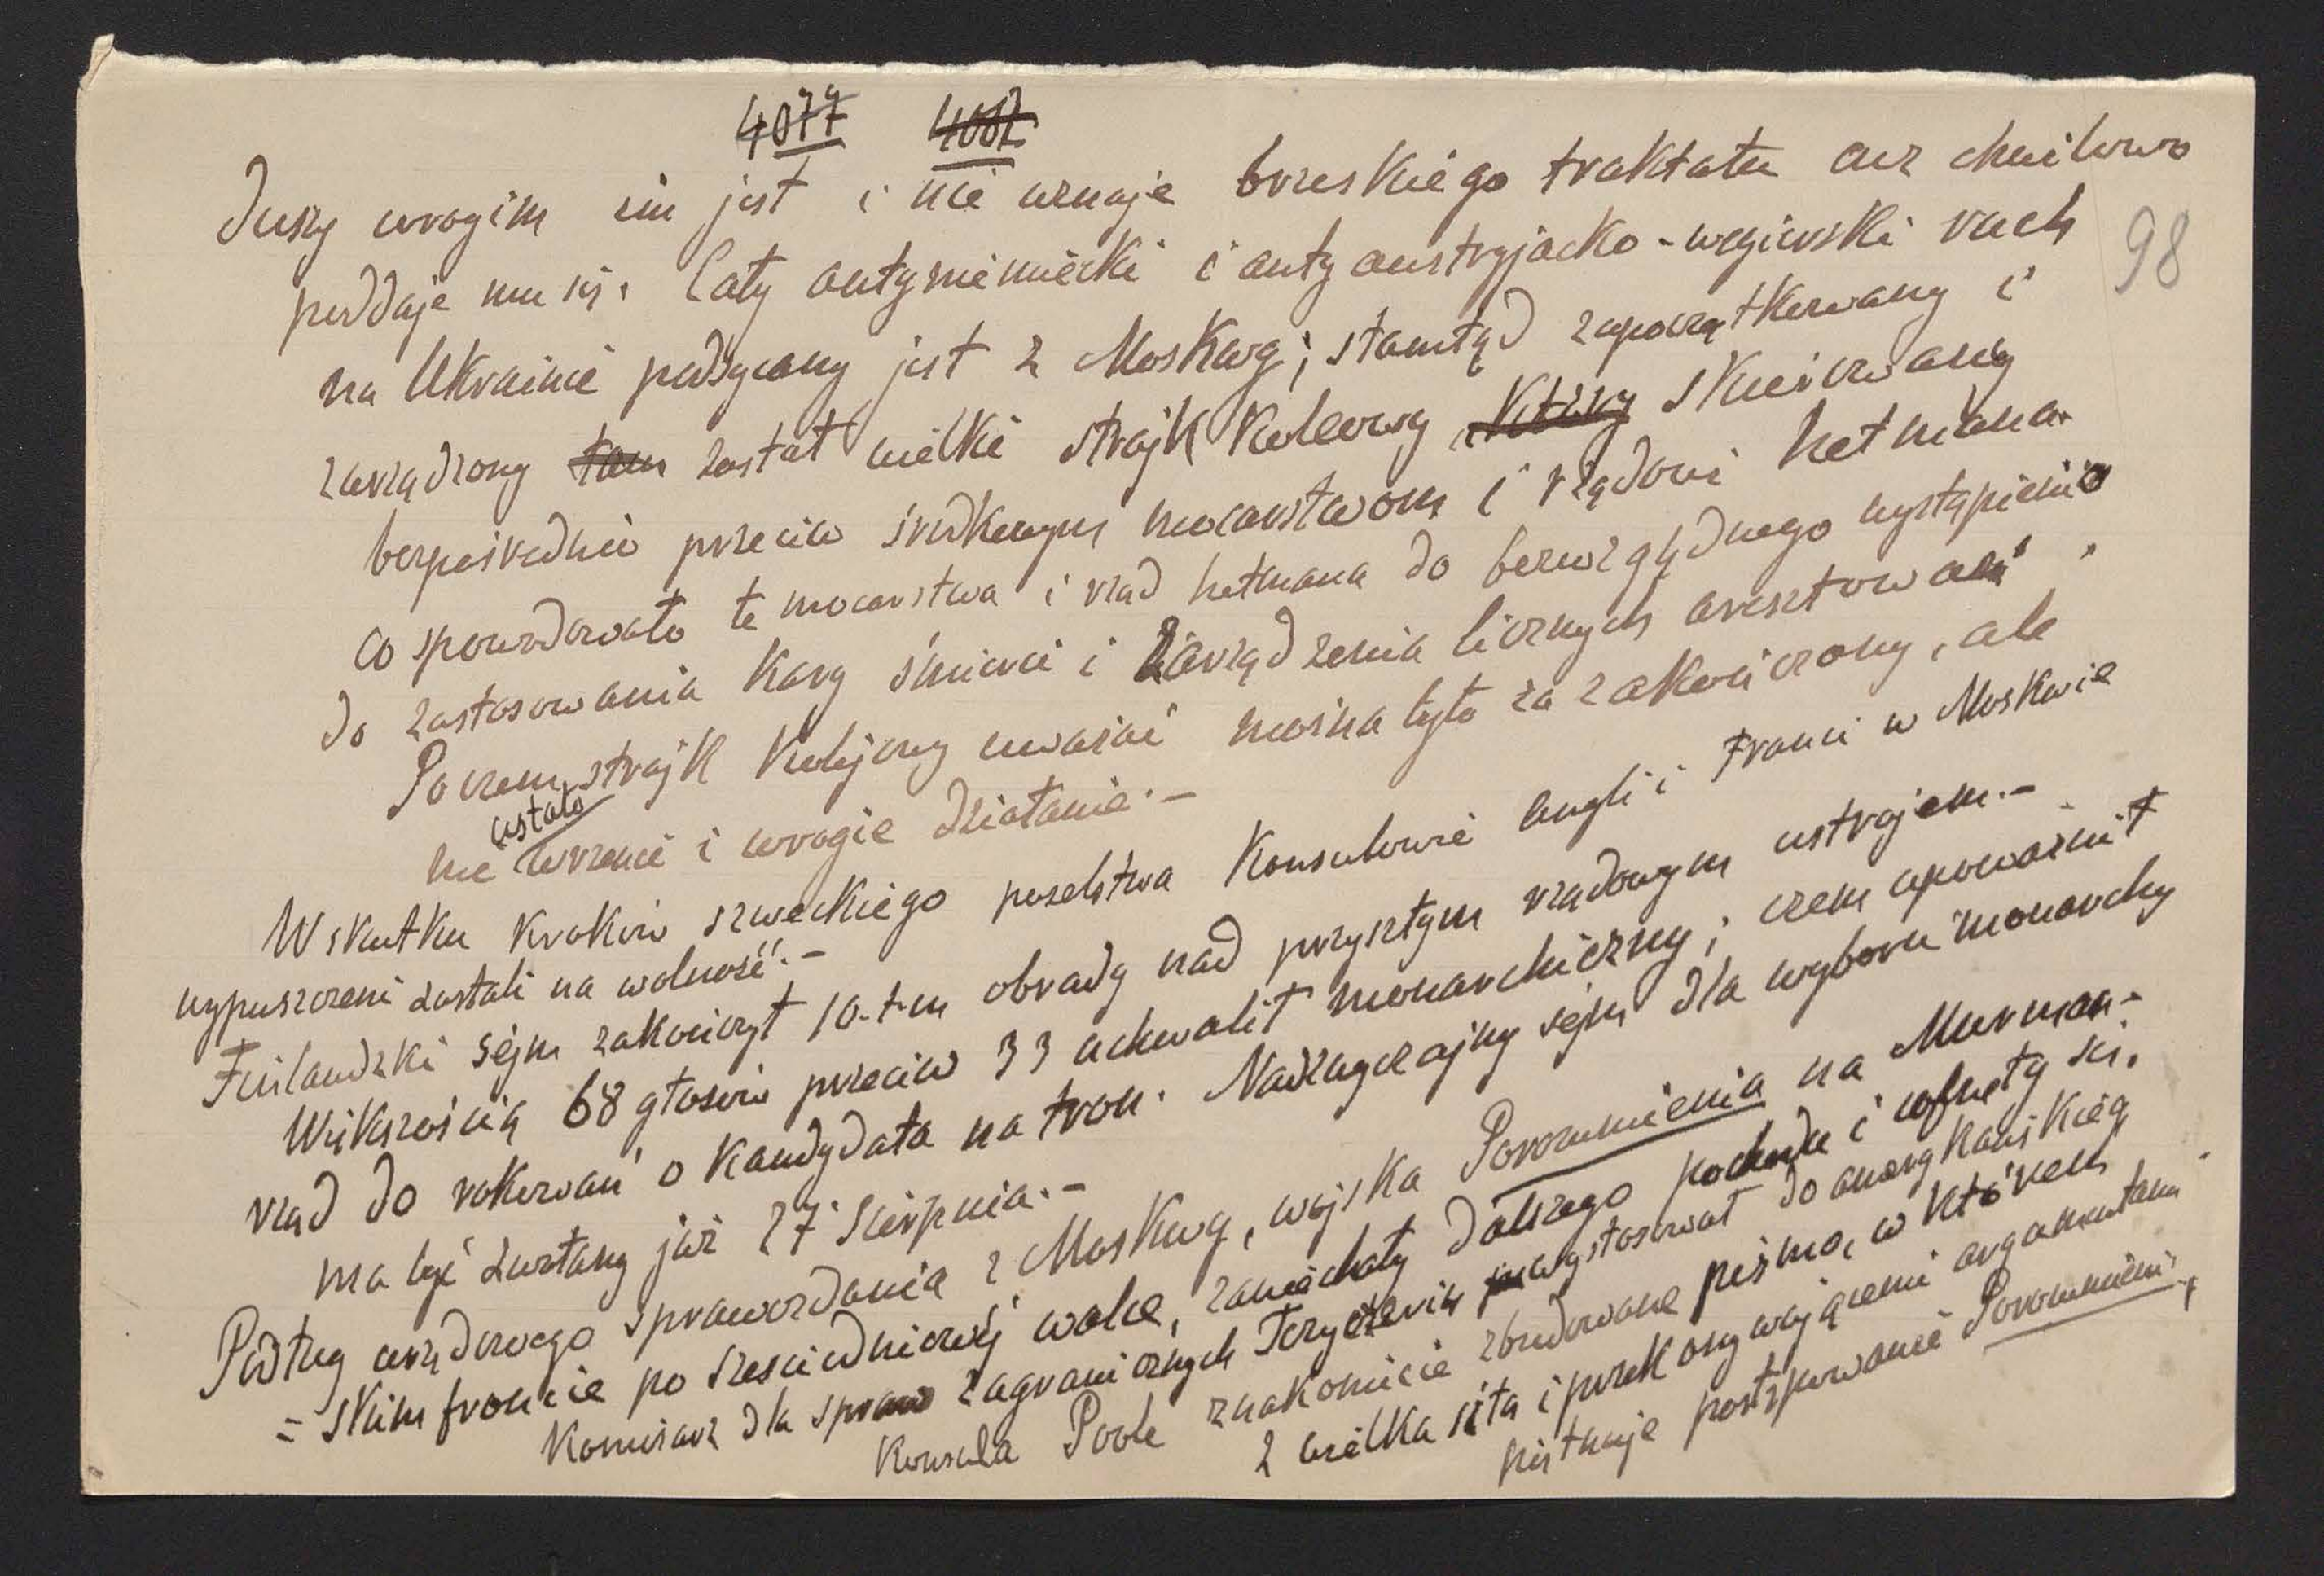 4077 4087
duszy wrogim im jest i nie uznaje brzeskiego traktatu acz chwilowo
poddaje mu się. Cały antyniemiecki i antyaustryjacko-węgierski ruch
98
na Ukrainie podsycany jest z Moskwy; stamtąd zapoczątkowany i
zarządzony tam został wielki strajk kolejowy, który skierowany
bezpośrednio przeciw środkowym mocarstwom i rządowi hetmana.
co spowodowało te mocarstwa i rząd hetmana do bezwzględnego wystąpienia
do zastosowania kary śmierci i zarządzenia licznych aresztowań.
Poczem strajk kolejowy uważać można było za zakończony, ale
nie ustało wrzenie i wrogie działanie.-
Wskutku kroków szweckiego poselstwa konsulowie Anglii i Francii w Moskwie
wypuszczeni zostali na wolność.-
Finlandzki sejm zakończył 10-t-m obrady nad przyszłym rządowym ustrojem.-
Większością 68 głosów przeciw 33 uchwalił monarchiczny; czem upoważnił
rząd do rokowań o kandydata na tron. Nadzwyczajny sejm dla wyboru monarchy
ma być zwołany już 27 Sierpnia.-
Podług urzędowego sprawozdania z Moskwy, wojska Porozumienia na Murman-
=skim froncie po sześciodniowej walce, zaniechały dalszego pochodu i cofnęły się.
Komisarz dla spraw zagranicznych Czyczerin wystosował do amerykańskieg
konsula Poole znakomicie zbudowane pismo, w którem
z wielką siłą i przekonywającemi argumentami
piętnuje postępowanie Porozumieni,